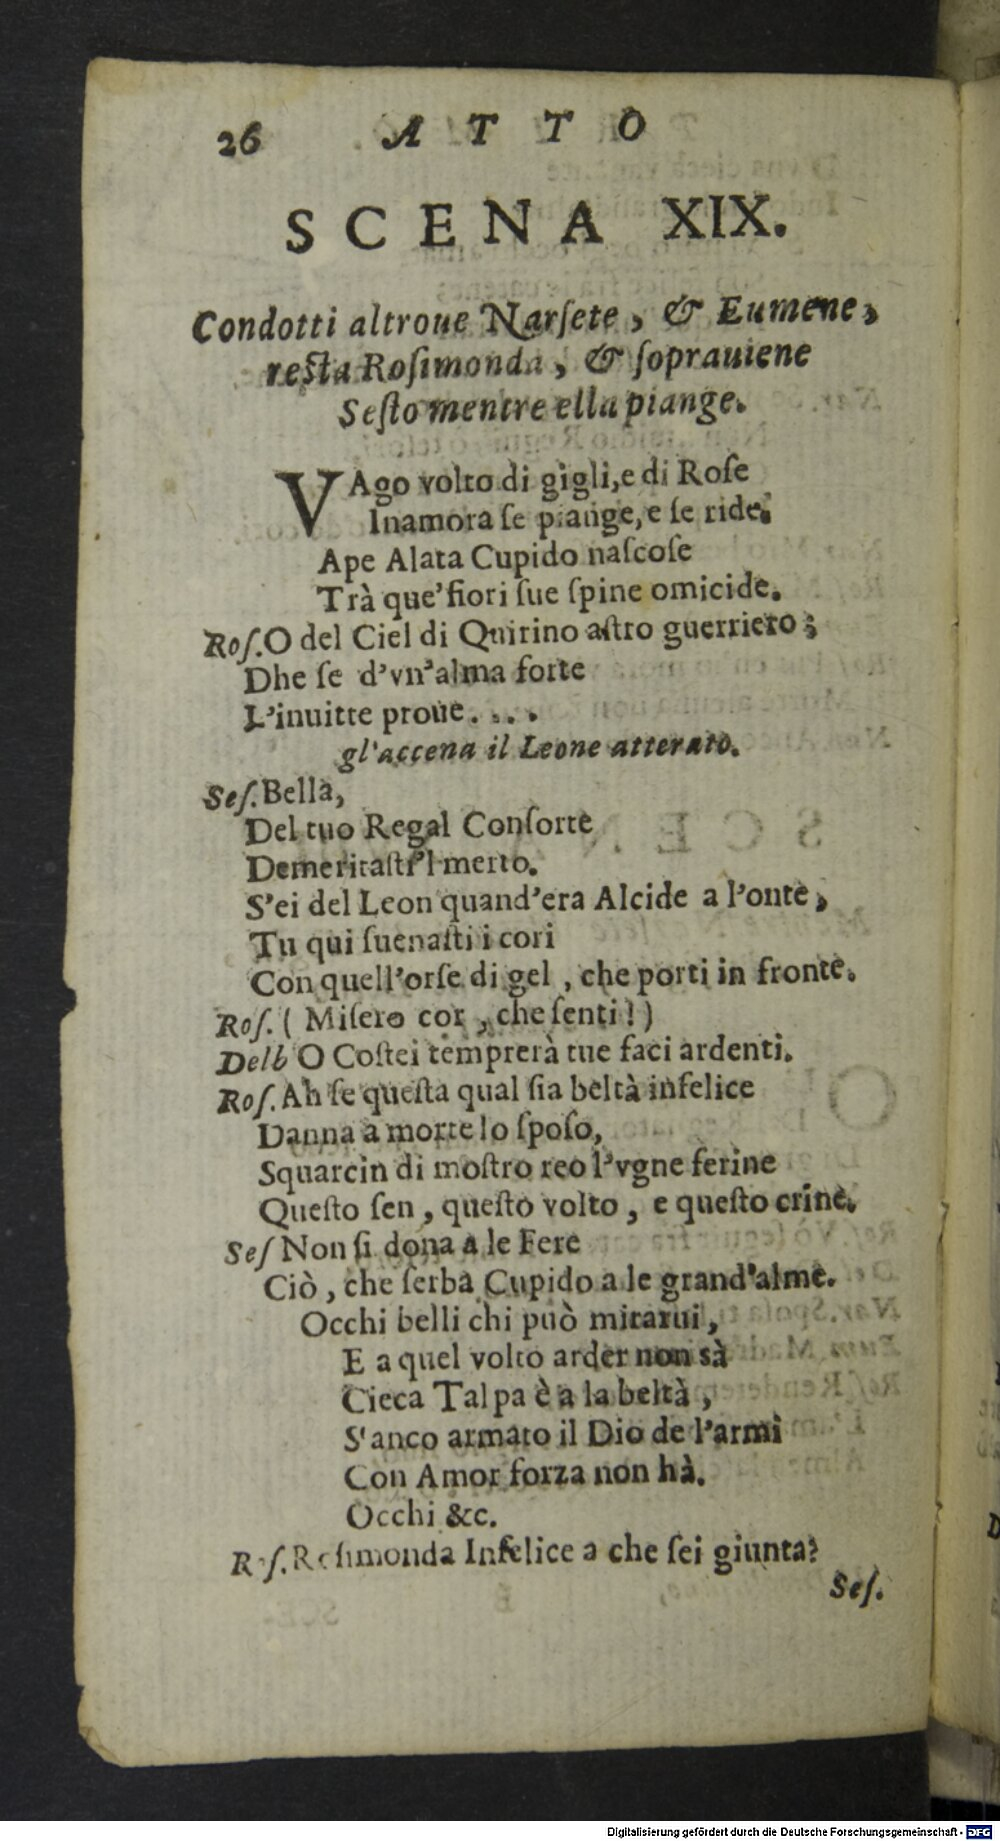 26 ATTO
SCENA XIX.
Condotti altroue Narſete, & Eumene,
reſta Roſimonda, & ſoprauiene
Seſto mentre ella piange.
VAgo volto di gigli, e di Roſe
Inamora ſe piange, e ſe ride.
Ape Alata Cupido naſcoſe
Trà que' fiori ſue ſpine omicide.
Roſ. O del Ciel di Quirino aſtro guerriero;
Dhe ſe d'vn'alma forte
L'inuitte proue....
gl'accena il Leone atterato.
Seſ. Bella,
Del tuo Regal Conſorte
Demeritaſti'l merto.
S'ei del Leon quand'era Alcide a l'onte,
Tu qui ſuenaſti i cori
Con quell'orſe di gel, che porti in fronte.
Roſ. (Miſero cor, che ſenti!)
Delb O Coſtei temprerà tue faci ardenti.
Roſ. Ah ſe queſta qual ſia beltà infelice
Danna a morte lo ſpoſo,
Squarcin di moſtro reo l'vgne ferine
Queſto ſen, queſto volto, e queſto crine.
Seſ Non ſi dona a le Fere
Ciò, che ſerba Cupido a le grand'alme.
Occhi belli chi può mirarui,
E a quel volto arder non sà
Cieca Talpa è a la beltà,
S'anco armato il Dio de l'armi
Con Amor forza non hà.
Occhi &c.
Roſ. Roſimonda Infelice a che ſei giunta?
Seſ.
Digitalisierung gefördert durch die Deutsche Forschungsgemeinschaft - DFG